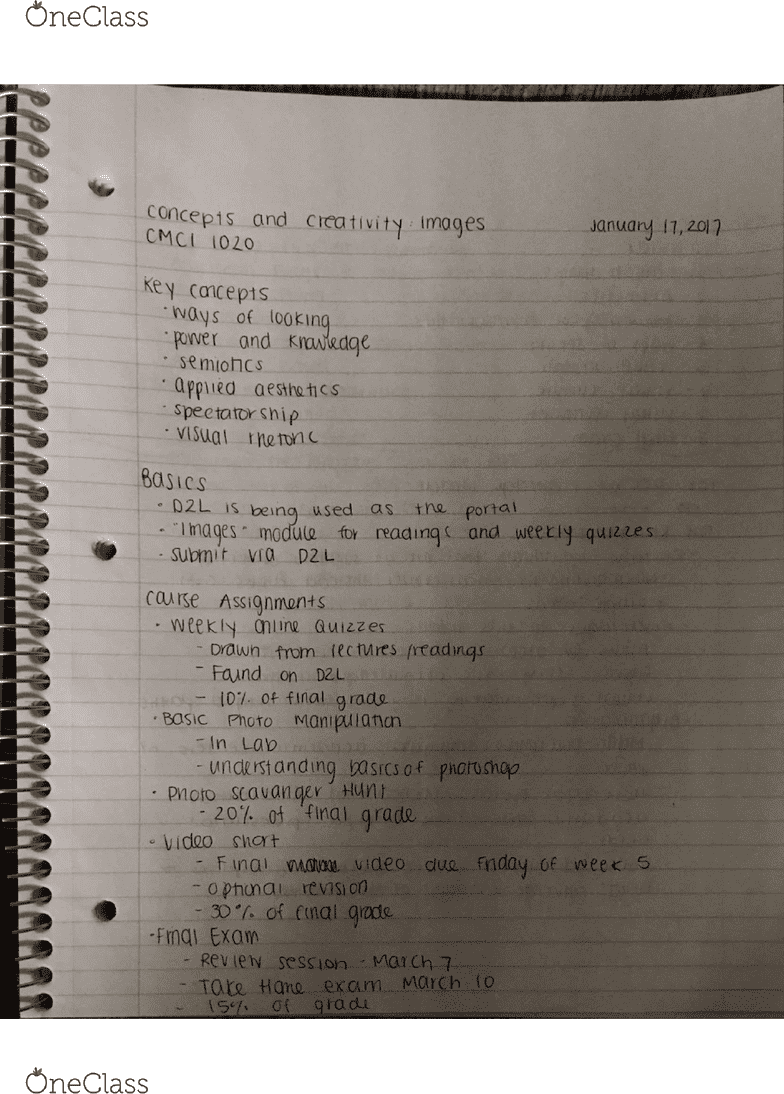 OneClass
concepts and creativity: Images January 17, 2017
CMCI 1020
Key concepts
· ways of looking
· power and knowledge
· semiotics
· applied aesthetics
· spectatorship
· visual rhetoric
Basics
· D2L is being used as the portal
· "Images" module for readings and weekly quizzes
· submit via D2L
Course Assignments
· Weekly Online Quizzes
- Drawn from lectures/readings
- Found on D2L
- 10% of final grade
· Basic Photo Manipulation
- In Lab
- understanding basics of photoshop
· Photo scavanger Hunt
- 20% of final grade
· Video short
- Final video due Friday of week 5
- optional revision
- 30% of final grade
· Final Exam
- Review session - March 7
- Take Home exam March 10
- 15% of grade
OneClass